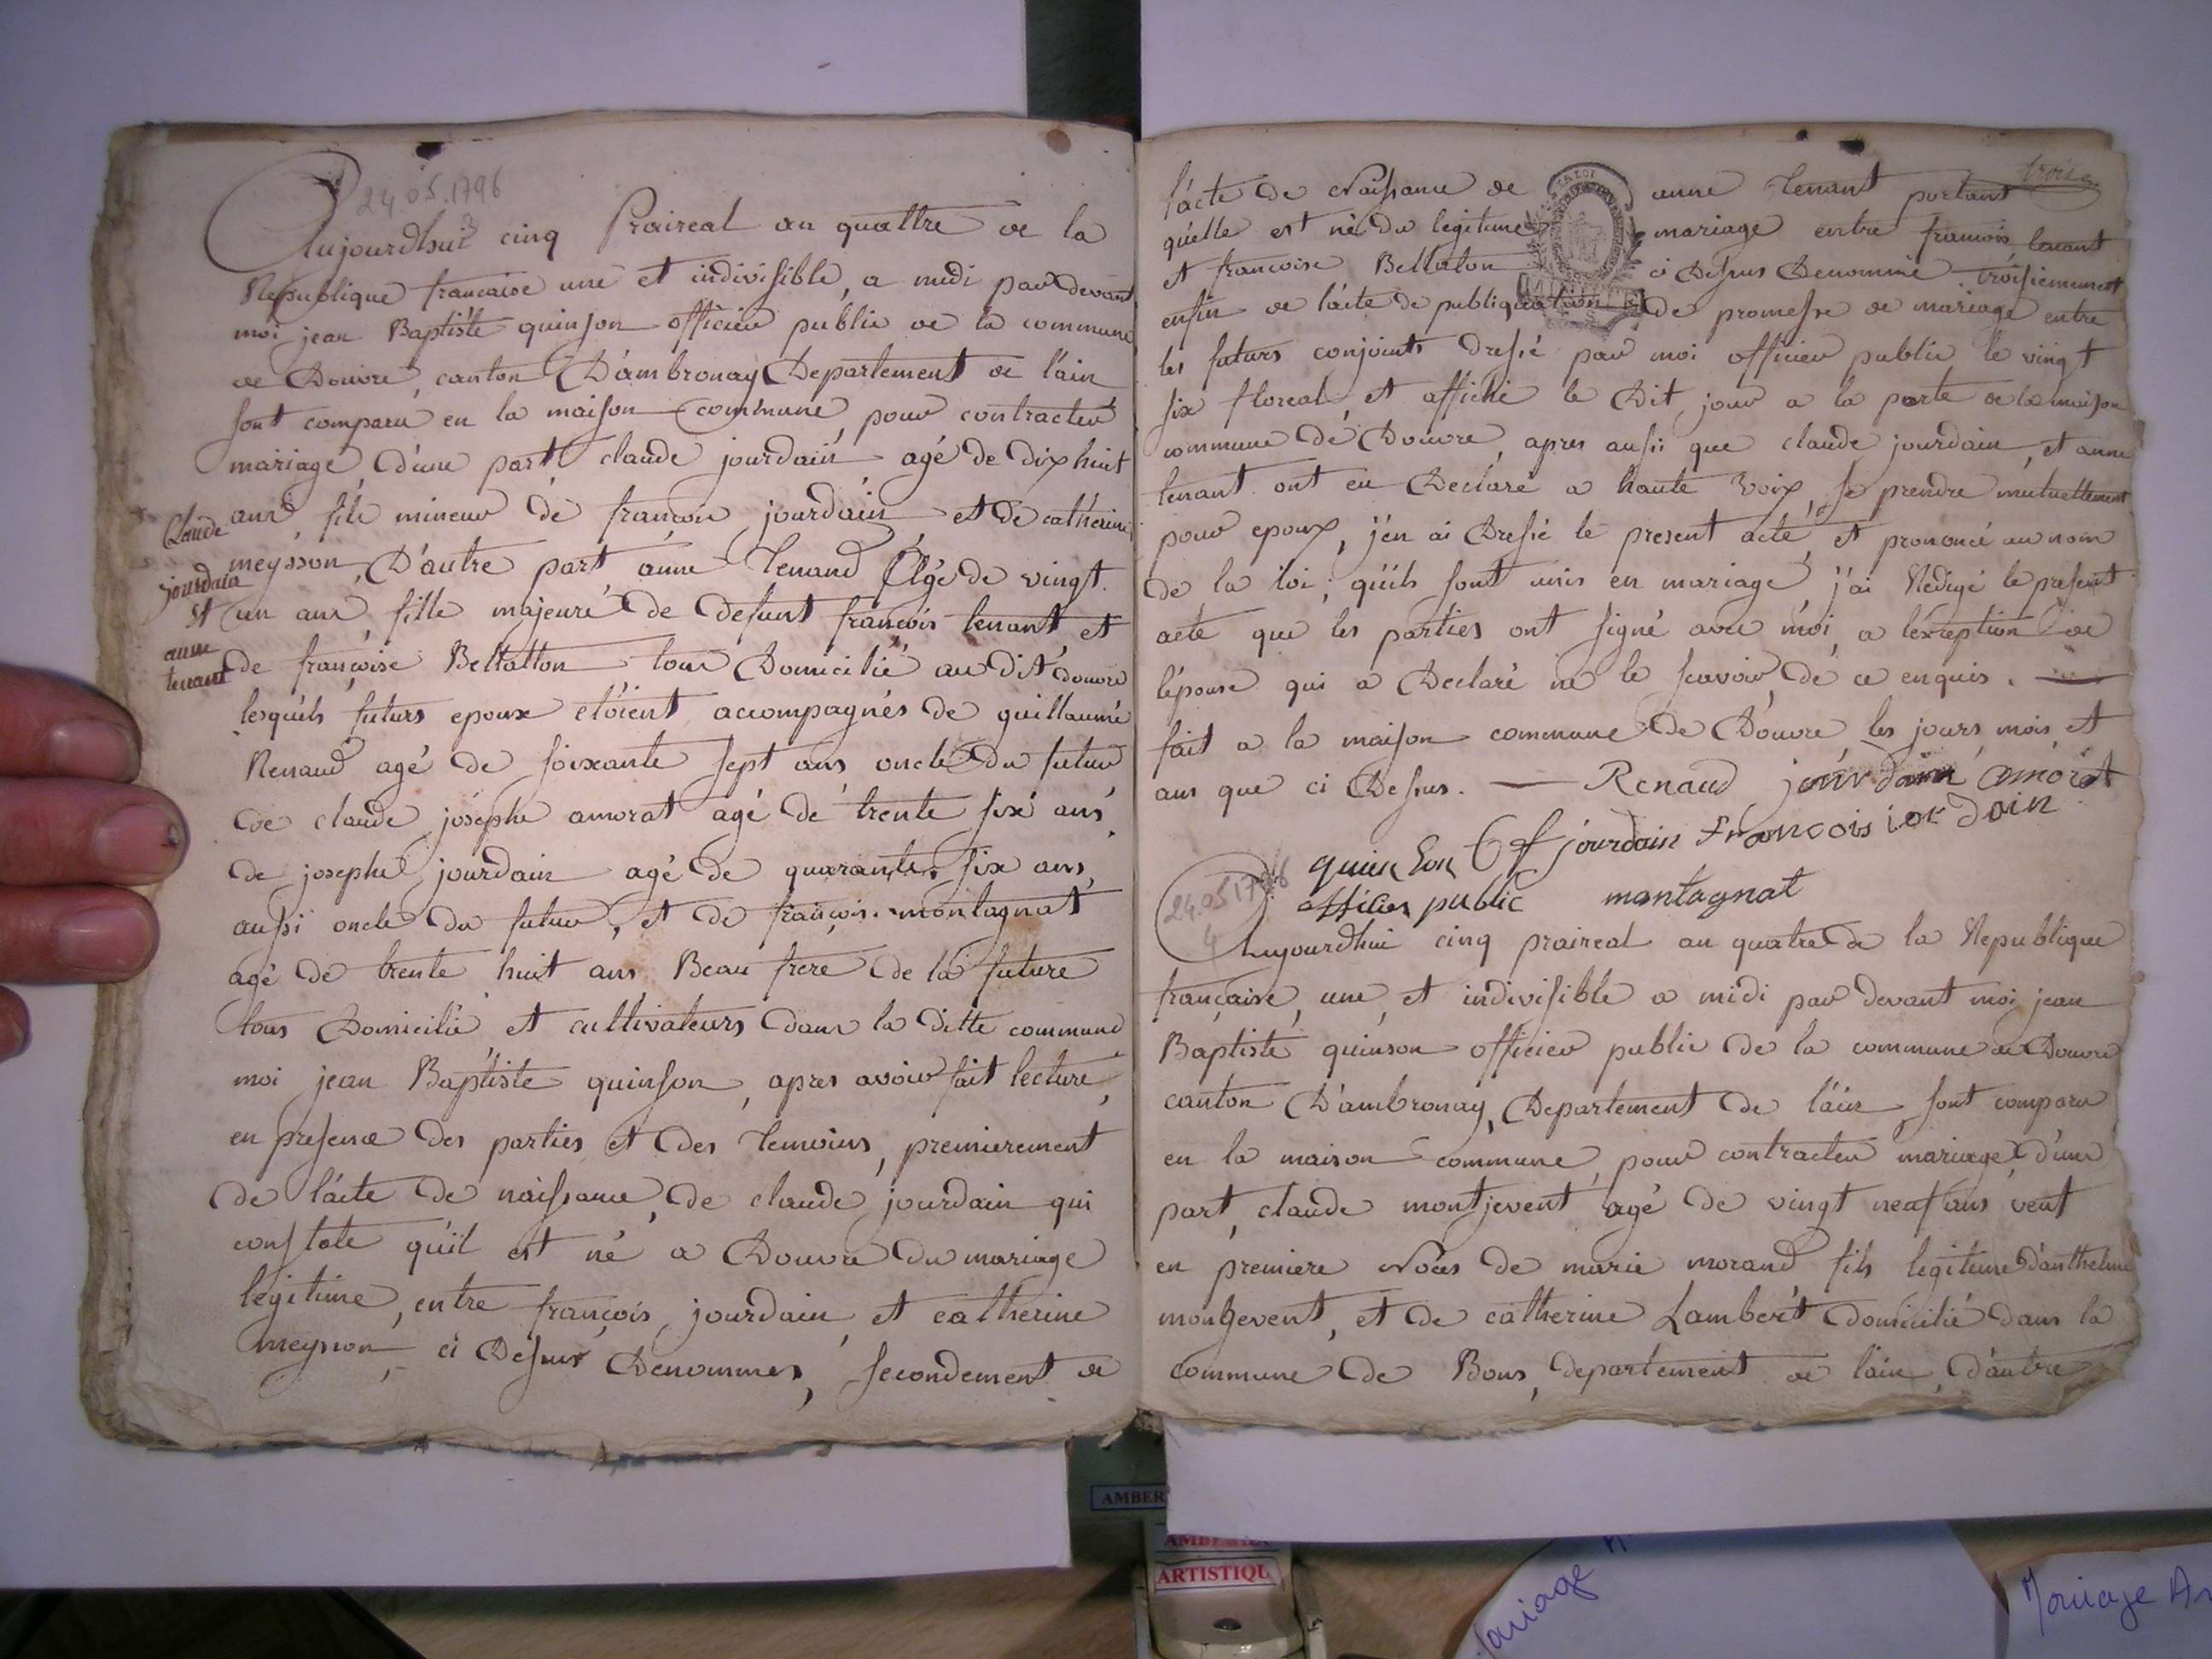 24.05.1796
Aujourdhui cinq Praireal an quattre de la
Republique francaise une et indivisible, a midi par devant
moi jean Baptiste quinson officier public de la commune
de Douvre, canton D'ambronay Departement de l'ain
sont comparu en la maison commune, pour contracter
mariage, D'une part claude jourdain agé de dix huit
ans fils mineur de francois jourdain et de catherine
meysson, D'autre part anne Tenand Agé de vingt
un ans, fille majeure de defunt francois tenant et
de françoise Bellatton tous Domicilié au dit douvre
Claude
jourdain
et
anne
tenant
lesquels futurs epoux etoient accompagnés de guillaume
Renaud agé de soixante sept ans oncle Du futur
de claude josephe amorat agé de trente six ans,
de josephe jourdain agé de quarante six ans,
aussi oncle du futur, et de francois montagnat
agé de trente huit ans Beau frere de la future
tous Domicilié et cultivateurs dans la ditte commune
moi jean Baptiste quinson, apres avoir fait lecture,
en presence des parties et des temoins, premierement
de l'acte de naissance, de claude jourdain qui
constate qu'il est né a Douvre du mariage
legitime, entre françois jourdain, et catherine
meysson, ci Dessus Denommes, secondement de
trois
l'acte de Naissance de anne Tenant portant
qu'elle est né du legitime mariage entre francois tenant
LA LOI
et francoise Bellaton ci Dessus Denommé troisiemement
enfin de l'acte de publiquation de promesse de mariage entre
les futurs conjoints dressé par moi officier public le vingt
six floreal et affiché le Dit jour a la porte de la maison
commune de Douvre, apres aussi que claude jourdain, et anne
tenant ont eu Declaré a haute voix, se prendre mutuellement
pour epoux, j'en ai Dressé le present acte, et prononcé au nom
de la loi, qu'ils sont unis en mariage, j'ai Redigé le present
acte que les parties ont signé avec moi, a l'exception de
l'épouse qui a Declaré ne le scavoir, de ce enquis. —
fait a la maison commune de Douvre les jours, mois et
ans que ci Dessus. — Renaud jourdain amorat
quinson Off jourdain Francois iordain
officier public montagnat
24.05 1796
4
Aujourdhui cinq praireal an quatre de la Republique
française, une, et indivisible a midi par devant moi jean
Baptiste quinson officier public de la commune de Douvre
canton D'ambronay, Departement de l'ain, sont comparu
en la maison commune, pour contracter mariage, d'une
part, claude montjevent agé de vingt neuf ans, veuf
en premiere Noces de marie morand fils legitime d'anthelme
montgevent, et de catherine Lambert domicilié dans la
commune de Bons, departement de l'ain, d'autre
AMBER
ARTISTIQU
Mariage
Mariage An